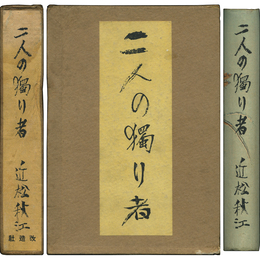 二人の獨り者
近松秋江
改造社
二人の獨り者
二人の獨り者
近松秋江